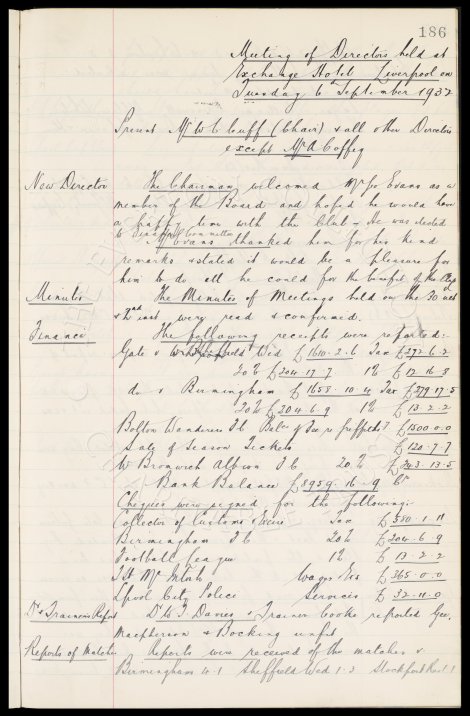 186
Meeting of Directors held at
Exchange Hotel Liverpool on
Tuesday 6th September 1932
Present Mr W C Cuff (Chair) & all other Directors
except Mr A Coffey
New Director The Chairman welcomed Mr Geo Evans as a
member of the Board and hoped he would have
a happy time with the Club. He was elected
to Committee
Mr Evans thanked him for his kind
remarks & stated it would be a pleasure for
him to do all he could for the benefit of the Club
Minutes The Minutes of Meetings held on the 30 ult
& 2nd inst were read & confirmed.
Finance The following receipts were reported:-
Gate v Sheffield Wed £1610.2.6 Tax £272.6.2
20% £204.17.7 1% £12.16.3
do v Birmingham £1658.10.4 Tax £279.17.5
20% £204.6.9 1% £13.2.2
Bolton Wanderers F C Balce of fee re £1500.0.0
Sale of Season Tickets £120.7.7
W Bromwich Albion F C 20% £243.13.5
Bank Balance £8959.16.9 Cr
Cheques were signed for the following:-
Collector of Customs & Excise Tax £580.1.11
Birmingham F C 20% £204.6.9
Football League 1% £13.2.2
T H McIntosh Wages Etc £365.0.0
Lpool City Police Services £32.11.0
Dr & Trainers Report Dr W J Davies & Trainer Cooke reported Geo.
Macpherson & Bocking unfit
Reports of Matches Reports were received of the matches v
Birmingham 4-1 Sheffield Wed 1-3 Stockport Res 1-1